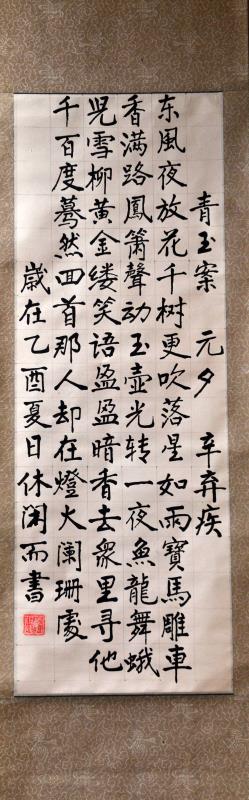 青玉案 元夕 辛弃疾
东風夜放花千树更吹落星如雨寶馬雕車
香滿路鳳簫聲动玉壺光转一夜魚龍舞蛾
児雪柳黄金缕笑语盈盈暗香去衆里寻他
千百度蓦然回首那人却在燈火阑珊處
歲在乙酉夏日休闲而書